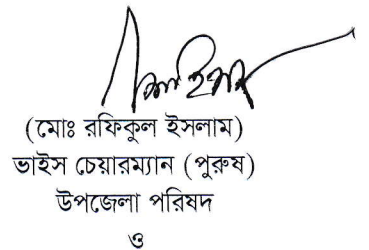 (মোঃ রফিকুল ইসলাম)
ভাইস চেয়ারম্যান (পুরুষ)
উপজেলা পরিষদ
ও